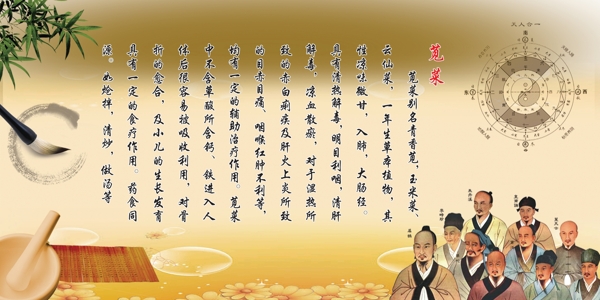 苋菜
苋菜别名青香苋，玉米菜、
云仙菜，一年生草本植物，其
性凉味微甘，入肺，大肠经。
具有清热解毒，明目利咽，清肝
解毒，凉血散瘀，对于湿热所
致的赤白痢疾及肝火上炎所致
的目赤目痛、咽喉红肿不利等，
均有一定的辅助治疗作用。苋菜
中不含草酸所含钙、铁进入人
体后很容易被吸收利用，对骨
折的愈合，及小儿的生长发育
具有一定的食疗作用。药食同
源。如炝拌，清炒，做汤等
天人合一